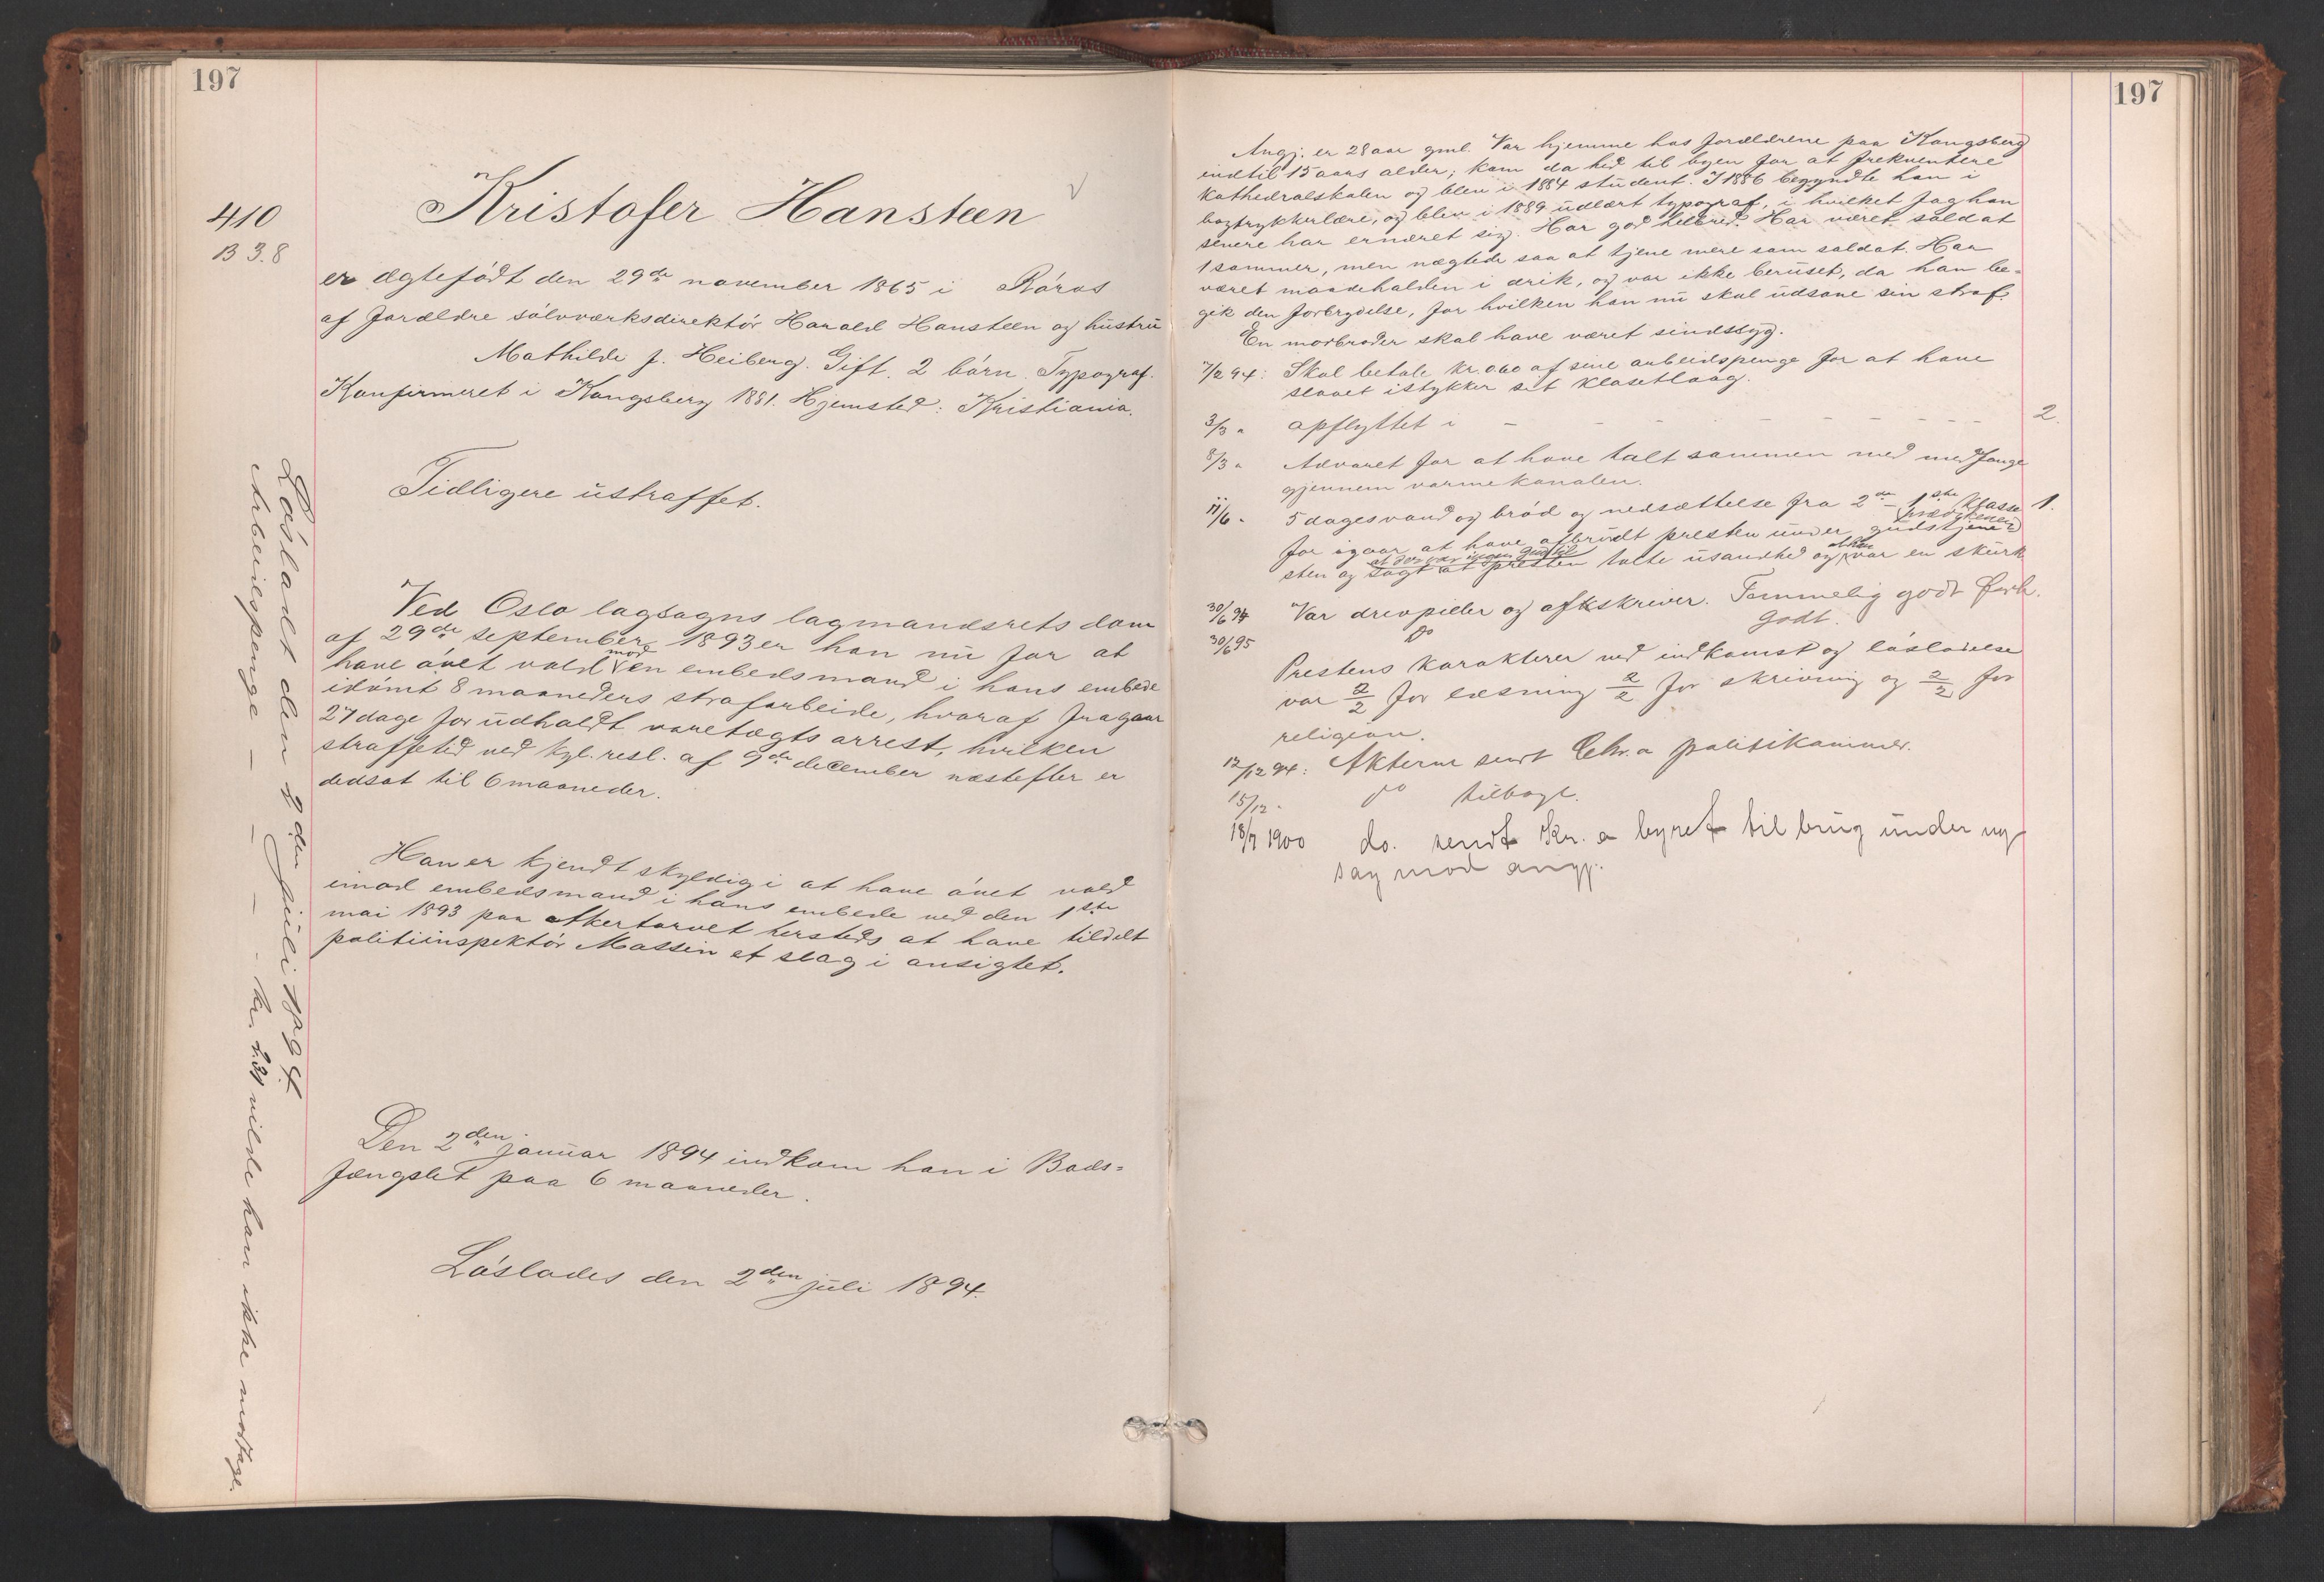 197
410
B 3.8
Kristofer Hansteen
er ægtefødt den 29de november 1865 i Røros
af forældre sølvværksdirektør Harald Hansteen og hustru
Mathilde f. Heiberg. Gift. 2 børn. Typograf.
Konfirmeret i Kongsberg 1881. Hjemsted: Kristiania.
Tidligere ustraffet.
Ved Oslo lagsogns lagmandsrets dom
af 29de september 1893 er han nu for at
have øvet vold mod en embedsmand i hans embede
idømt 8 maaneders strafarbeide, hvoraf fragaar
27 dage for udholdt varetægtsarrest, hvilken
straffetid ved kgl. resl. af 9de december næstefter er
nedsat til 6 maaneder.
Han er kjendt skyldig i at have øvet vold
imod embedsmand i hans embede ved den 1ste
mai 1893 paa Akertorvet hersteds at have tildelt
politiinspektør Massin et slag i ansigtet.
Den 2den januar 1894 indkom han i Bods-
fængslet paa 6 maaneder.
Løslades den 2den juli 1894.
Løsladt den 2den juli 1894.
Arbeidspenge – – – - kr. 2.31 vilde han ikke modtage.
197
Angj. er 28 aar gml. Var hjemme hos forældrene paa Kongsberg
indtil 15 aars alder; kom da hid til byen for at frekventere
Kathedralskolen og blev i 1884 student. I 1886 begyndte han i
bogtrykkerlære, og blev i 1889 udlært typograf, i hvilket fag han
senere har ernæret sig. Har god helbred. Har været soldat
1 sommer, men nægtede saa at tjene mere som soldat. Har
været maadeholden i drik, og var ikke beruset, da han be-
gik den forbrydelse, for hvilken han nu skal udsone sin straf.
En morbroder skal have været sindssyg.
7/2 94: Skal betale kr. 0.60 af sine arbeidspenge for at have
slaaet istykker sit klosetlaag.
3/3 " opflyttet i – – – – – – – – 2.
8/3 " Advaret for at have talt sammen med medfange
gjennem varmekanalen.
11/6 " 5 dages vand og brød og nedsættelse fra 2de – 1ste klasse 1.
for igaar at have afbrudt presten under gudstjene-
sten og sagt at der var ingen Gud til at presten talte usandhed og at han var en skurk.
30/6 94 Var drevpiller og afskriver. Temmelig godt Forh.
30/6 95 Do godt.
Prestens karakterer ved indkomst og løsladelse
var 2/2 for læsning 2/2 for skrivning og 2/2 for
religion.
12/12 94: Akterne sendt Chr.a politikammer.
15/12 " do tilbage.
18/7 1900 do. sendt Kr.a byret til brug under ny
sag mod angj.